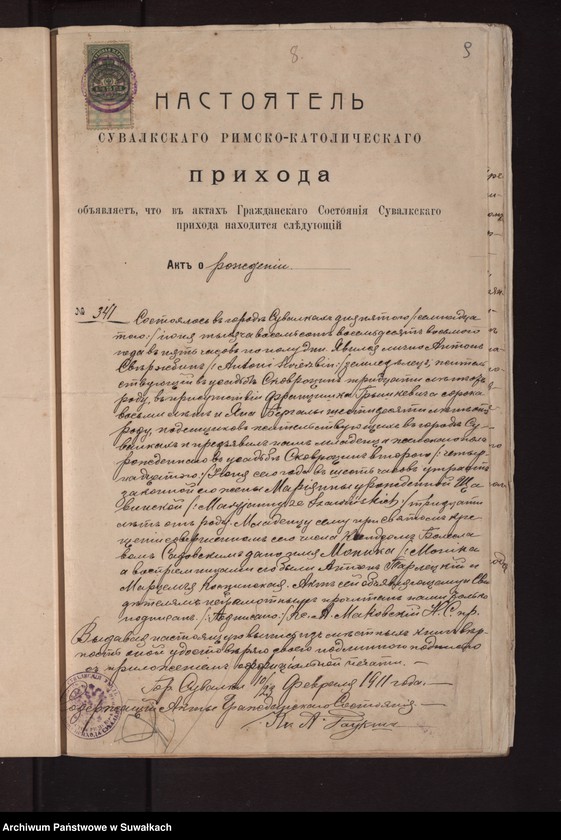 8.
9
НАСТОЯТЕЛЬ
СУВАЛКСКАГО РИМСКО-КАТОЛИЧЕСКАГО
ПРИХОДА
объявляетъ, что въ актахъ Гражданскаго Состоянія Сувалкскаго
прихода находится слѣдующій
Актъ о рожденіи.
№ 341
Состоялось въ городѣ Сувалкахъ дня пятого /семнадца
того:/ Іюня тысяча восемьсотъ восемьдесятъ восьмого
года въ пять часовъ по полудни. Явился лично Антонъ
/Antoni земледѣлецъ, житель
ствующій въ усадьбѣ тридцати лѣтъ отъ
роду, въ присутствіи Францишка сорока
восьми лѣтъ и Яна шестидесяти лѣтъ отъ
роду, жительствующихъ въ городѣ Су
валкахъ и предъявилъ намъ младенца женскаго пола
рожденнаго въ усадьбѣ второго /:четыр
надцатого:/ Іюня сего года въ шесть часовъ утра отъ
законной его жены Маріянны урожденной
тридцати
лѣтъ отъ роду. Младенцу сему при святомъ кре
щеніи совершенномъ сего числа Ксендзомъ Болесла
вомъ Садовскимъ дано имя Моника /:Monika
а воспріемниками его были Антонъ и
Актъ сей объявляющему и сви
дѣтелямъ неграмотнымъ прочитанъ нами только
подписанъ. /Подписано:/ Кс. А. Маковскій Н.С. пр.
Выдавая настоящую выпись изъ мѣстныхъ книгъ вѣр
ность оной удостовѣряю своею подписью
съ приложеніемъ оффиціальной печати. —
Гор. Сувалки 10/23 Февраля 1911 года. —
Содержащій Акты Гражданскаго Состоянія. —
Кс. А.
Archiwum Państwowe w Suwałkach